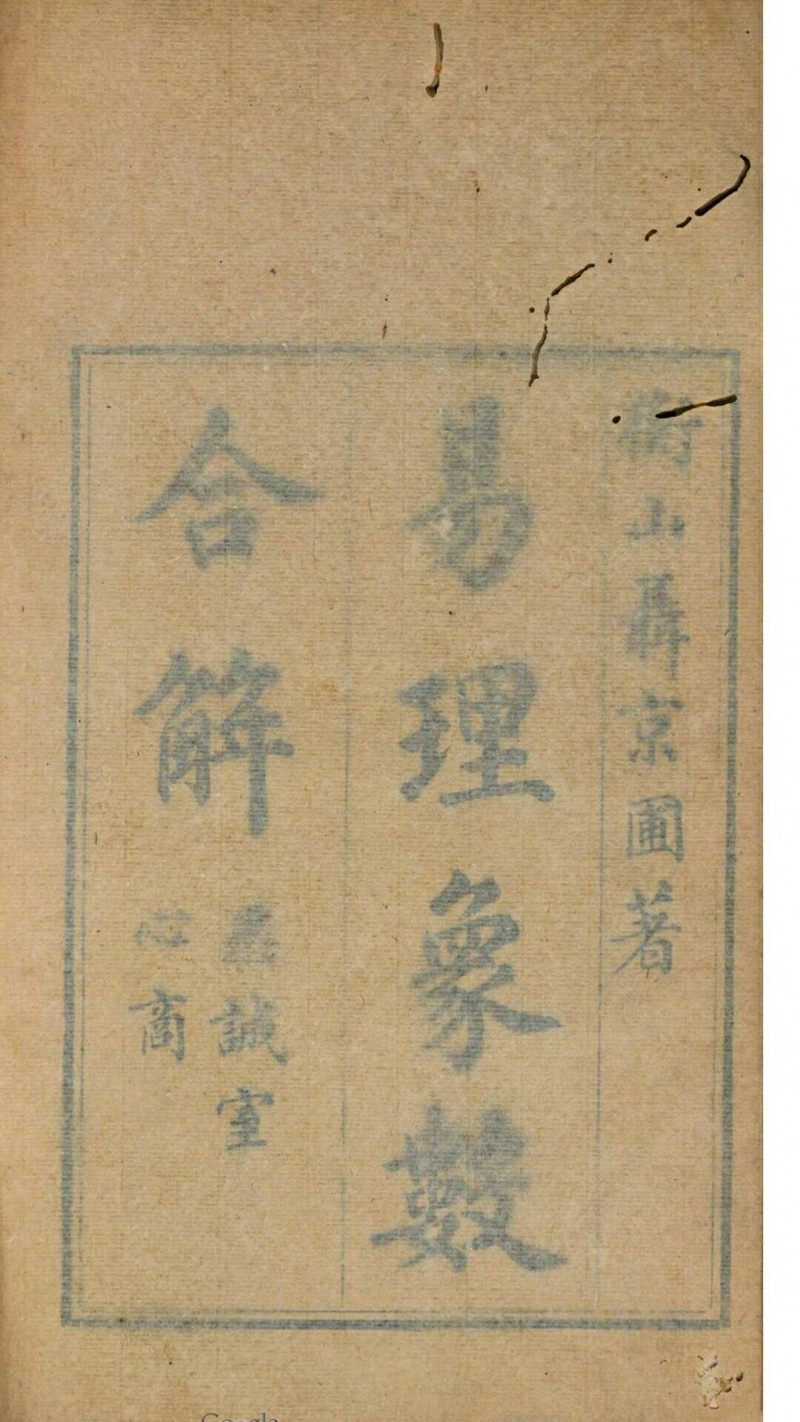 衡山聶京圃著
易理象數
合解
聶誠室
心商
Google